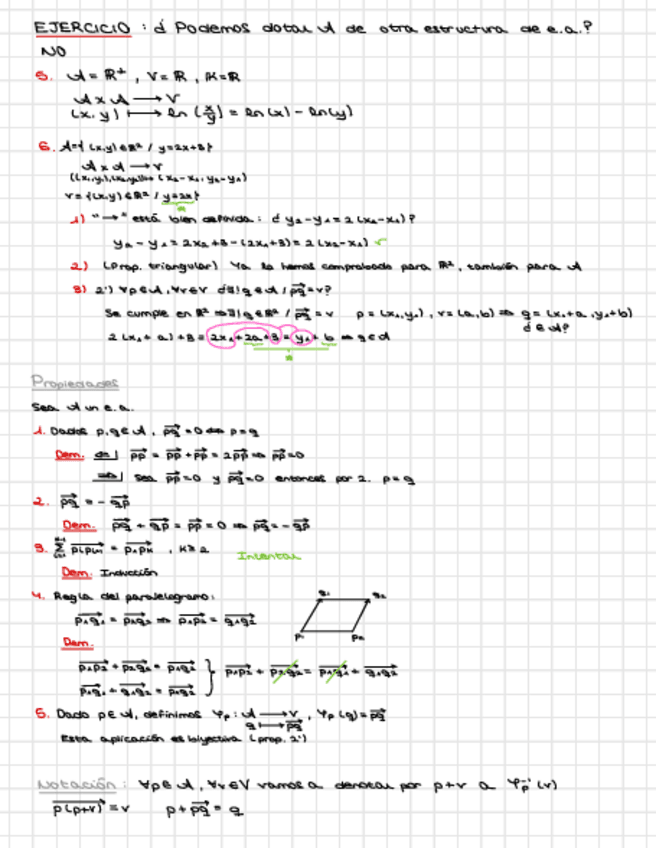 EJERCICIO : ¿ Podemos dotar A de otra estructura de e.a.?
NO
5. A = R⁺ , V = R , K = R
A x A → V
(x, y) ↦ ln (x/y) = ln(x) - ln(y)
6. A = { (x,y) ∈ R² / y=2x+3}
A x A → V
((x₁,y₁),(x₂,y₂)) ↦ (x₂-x₁, y₂-y₁)
V = {(x,y) ∈ R² / y=2x}
1) "→" está bien definida : ¿ y₂-y₁ = 2 (x₂-x₁)?
y₂ - y₁ = 2x₂+3 - (2x₁+3) = 2 (x₂-x₁) ✓
2) (Prop. triangular) Ya la hemos comprobado para R², también para A
3) 2') ∀p∈A, ∀v∈V ¿∃! q∈A / pq = v?
Se cumple en R² ⇒ ∃! q∈R² / pq = v p = (x₁,y₁), v = (a,b) ⇒ q = (x₁+a, y₁+b)
¿ ∈ A?
2 (x₁ + a) + 3 = 2x₁ + 2a + 3 = y₁ + b ⇒ q∈A
Propiedades
Sea A un e.a.
1. Dados p,q∈A, pq = 0 ⇔ p = q
Dem. ⇐| pp = pp + pp = 2pp ⇒ pp = 0
⇒| Sea pp = 0 y pq = 0 entonces por 2. p = q
2. pq = - qp
Dem. pq + qp = pp = 0 ⇒ pq = - qp
3. = p₁pₖ , k ≥ 2 Intentar
Dem. Inducción
4. Regla del paralelogramo:
p₁q₁ = p₂q₂ ⇒ p₁p₂ = q₁q₂
q₁ q₂
p₁ p₂
Dem.
p₁p₂ + p₂q₂ = p₁q₂ } p₁p₂ + p₂q₂ = p₁q₁ + q₁q₂
p₁q₁ + q₁q₂ = p₁q₂
5. Dado p∈A, definimos φₚ : A → V , φₚ (q) = pq
q ↦ pq
Esta aplicación es biyectiva (prop. 2')
Notación : ∀p∈A, ∀v∈V vamos a denotar por p+v a φₚ⁻¹ (v)
p(p+v) = v p + pq = q